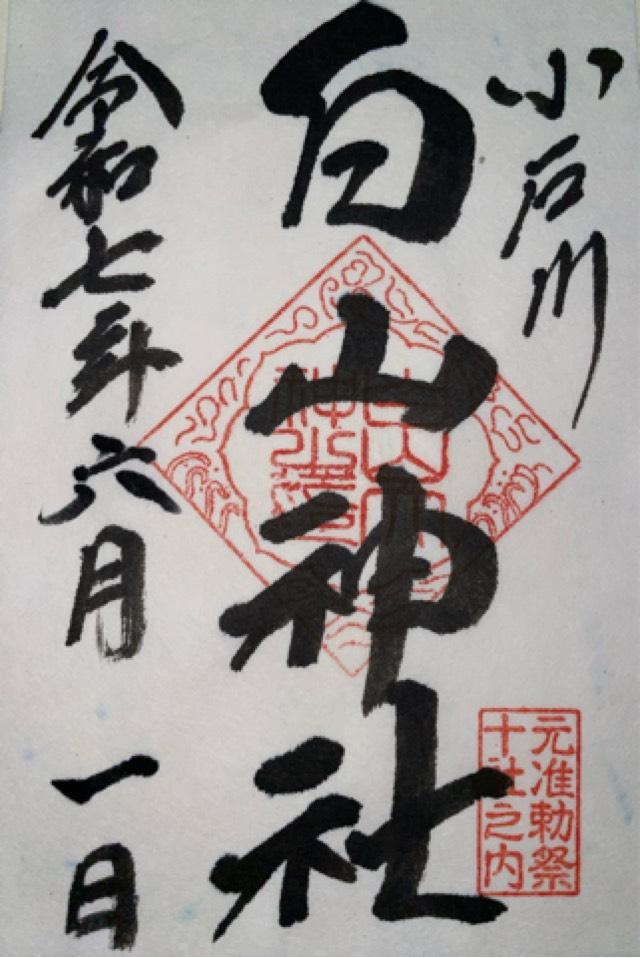 小石川
白山神社
元准勅祭
十社之内
令和七年六月一日